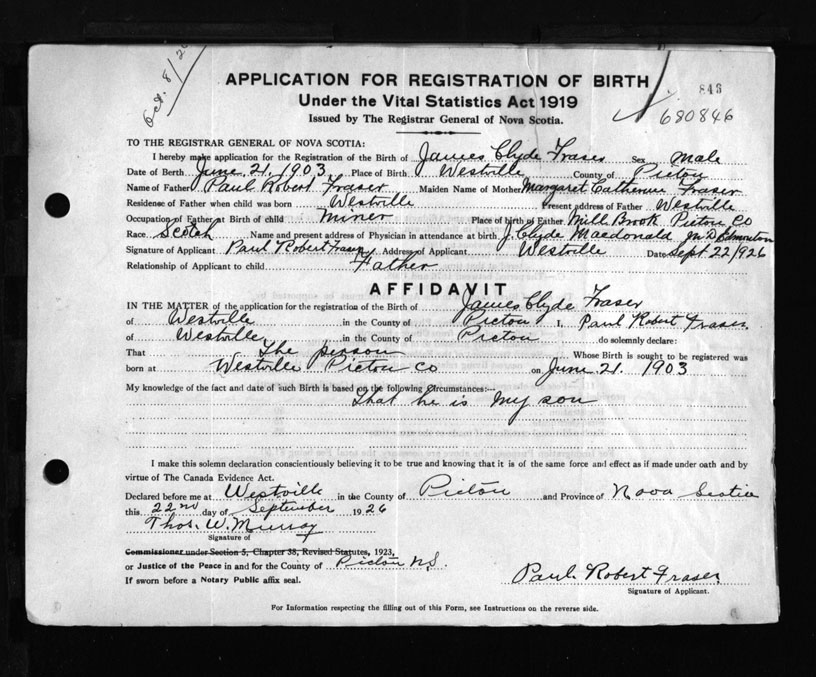 Oct. 8/26
APPLICATION FOR REGISTRATION OF BIRTH
846
Under the Vital Statistics Act 1919
680846
Issued by The Registrar General of Nova Scotia.
TO THE REGISTRAR GENERAL OF NOVA SCOTIA:
I hereby make application for the Registration of the Birth of James Clyde Fraser Sex Male
Date of Berth June 21, 1903 Place of Birth Westville County of Pictou
Name of Father Paul Robert Fraser Maiden Name of Mother Margaret Catherine Fraser
Residense of Father when child was born Westville Present address of Father Westville
Occupation of Father at Birth of child Miner Place of birth of Either Mill Brook Pictou Co
Race Scotch Name and present address of Physician in attendance at birth J. Clyde Macdonald M.D Edmonton
Signature of Applicant Paul Robert Fraser Address of Applicant Westville Date Sept 22/1926
Relationship of Applicant to child Father
AFFIDAVIT
IN THE MATTER of the application for the registration of the Birth of James Clyde Fraser
of Westville in the County of Pictou I, Paul Robert Fraser
of Westville in the County of Pictou do solemnly declare:
That The person Whose Birth is sought to be registered was
born at Westville Pictou Co on June 21. 1903
My knowledge of the fact and date of such Birth is based on the following Circumstances:—
That he is my son
I make this solemn declaration conscientiously believing it to be true and knowing that it is of the same force and effect as if made under oath and by
virtue of The Canada Evidence Act.
Declared before me at Westville in the County of Pictou and Province of Nova Scotia
this 22nd day of September 1926
Thos. W. Murray
Signature of
Commissioner under Section 5, Chapter 38, Revised Statutes, 1923,
or Justice of the Peace in and for the County of Pictou N.S.
If sworn before a Notary Public affix seal.
Paul Robert Fraser
Signature of Applicant.
For Information respecting the filling out of this Form, see Instructions on the reverse side.